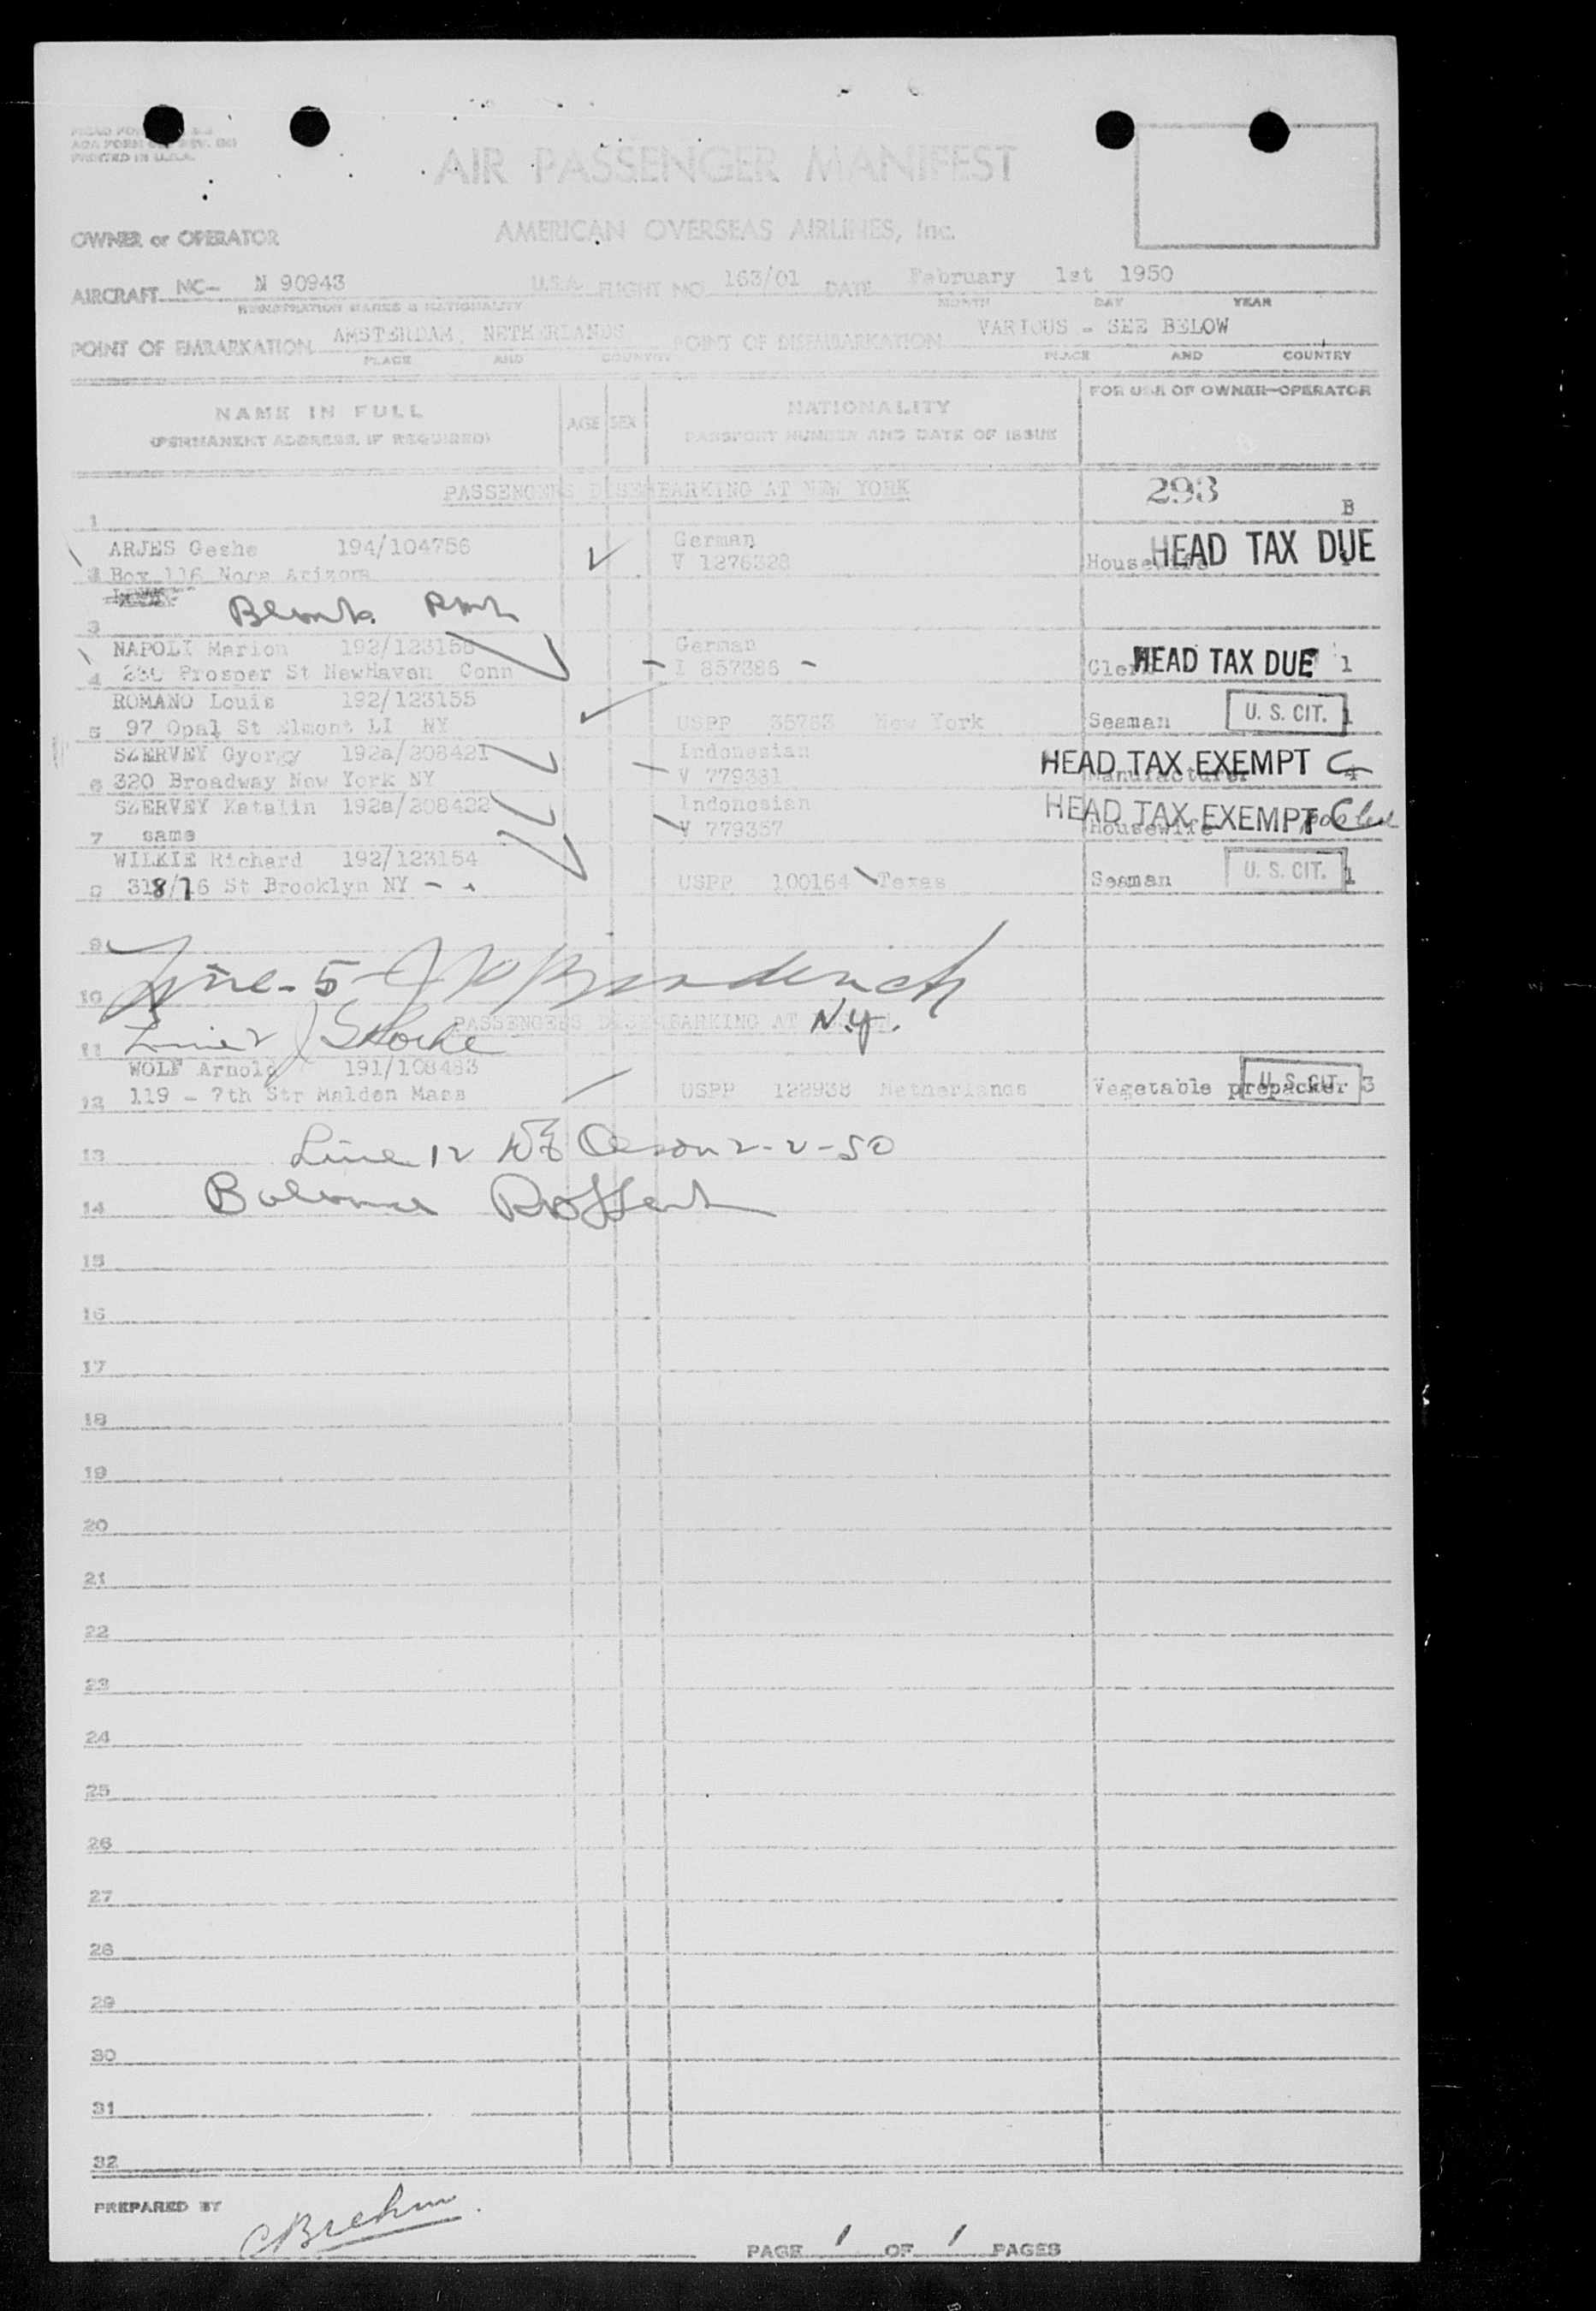 PRINTED IN U.S.A.
AIR PASSENGER MANIFEST
OWNER or OPERATOR AMERICAN OVERSEAS AIRLINES, Inc.
AIRCRAFT NC- N 90943 U.S.A. FLIGHT NO. 163/01 DATE February 1st 1950
REGISTRATION MARKS & NATIONALITY MONTH DAY YEAR
POINT OF EMBARKATION AMSTERDAM, NETHERLANDS POINT OF DISEMBARKATION VARIOUS - SEE BELOW
PLACE AND COUNTRY PLACE AND COUNTRY
NAME IN FULL AGE SEX NATIONALITY FOR USE OF OWNER-OPERATOR
(PERMANENT ADDRESS, IF REQUIRED) PASSPORT NUMBER AND DATE OF ISSUE
PASSENGERS DISEMBARKING AT NEW YORK 293
1 B
ARJES Geshe 194/104756 German HEAD TAX DUE
2 Box 116 V 1276328 Housewife
3
NAPOLI Marion 192/123156 German
4 Prosper St NewHaven Conn I 857386 - Clerk HEAD TAX DUE 1
ROMANO Louis 192/123155
5 97 Opal St Elmont LI NY USPP 35763 New York Seaman U. S. CIT. 1
SZERVEY Gyorgy 192a/208421 Indonesian HEAD TAX EXEMPT
6 320 Broadway New York NY V 779381 Manufacturer 4
SZERVEY Katalin 192a/208422 Indonesian HEAD TAX EXEMPT
7 same V 779357 Housewife
WILKIE Richard 192/123154
8 318/76 St Brooklyn NY USPP 100164 Texas Seaman U. S. CIT. 1
9
10 Line - 5 -
PASSENGERS DISEMBARKING AT N.Y.
11
WOLF Arnold 191/108483
12 119 - 7th Str Malden Mass USPP 122938 Netherlands Vegetable prepacker U. S. CIT. 3
13 Line 12 2-2-50
14 Balance
15
16
17
18
19
20
21
22
23
24
25
26
27
28
29
30
31
32
PREPARED BY CBrehm
PAGE 1 OF 1 PAGES